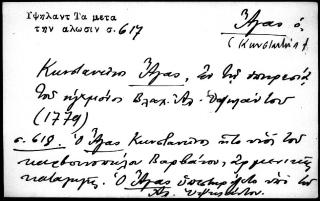 Υψηλαντ Τα μετα
την αλωσιν σ. 617
Ἄγας ὁ
(Κωνσταντῖν
Κωνσταντῖνος Ἄγας, ἐν τῇ ὑπηρεσίᾳ
τοῦ ἡγεμόνος Βλαχ. Ἀλ. Ὑψηλάντου
(1779)
σ. 618. Ὁ Ἄγας Κωνσταντῖνος ἦτο υἱὸς τοῦ
Βαρβάνου, ἀρμενικῆς
καταγωγῆς. Ὁ Ἄγας ὑπὸ τοῦ
Ἀλ. Ὑψηλάντου.